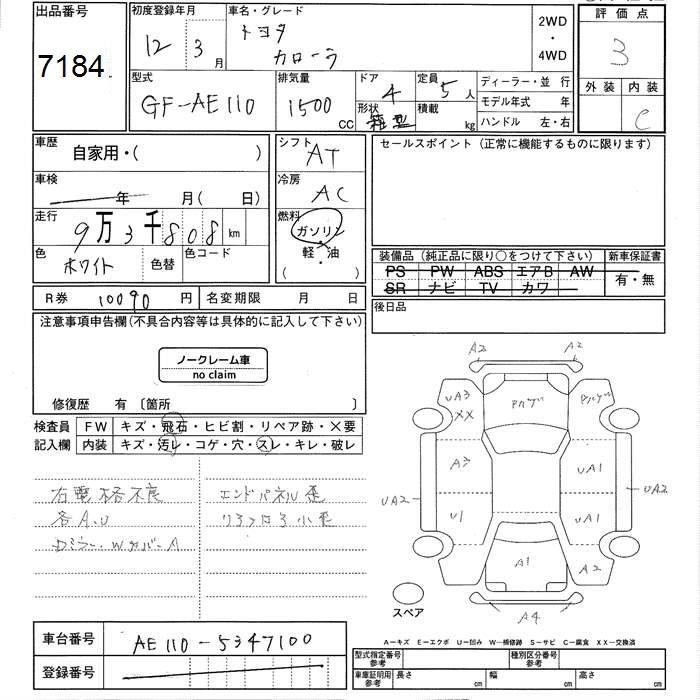 出品番号
7184
初度登録年月
12年3月
車名・グレード
トヨタ
カローラ
2WD
・
4WD
評価点
3
外装 内装
C
型式
GF-AE110
排気量
1500 CC
ドア
4
形状
箱型
定員
5人
積載
kg
ディーラー・並行
モデル年式 年
ハンドル 左・右
車歴
自家用・( )
車検
年 月( 日)
走行
9万3千808km
色
ホワイト
色替
色コード
シフト
AT
冷房
AC
燃料
ガソリン
・
軽・油
( )
セールスポイント(正常に機能するものに限ります)
装備品(純正品に限り○をつけて下さい)
PS PW ABS エアB AW
SR ナビ TV カワ
新車保証書
有・無
後日品
R券 10090円
名変期限 月 日
注意事項申告欄(不具合内容等は具体的に記入して下さい)
ノークレーム車
no claim
修復歴 有 〔箇所 〕
検査員
記入欄
FW キズ・飛石・ヒビ割・リペア跡・X要
内装 キズ・汚レ・コゲ・穴・スレ・キレ・破レ
右電格不良
各A.U
エンドパネル歪
A2
A2
UA3
XX
A3
UA1
UA2
UA2
U1
UA1
A1
A2
A4
スペア
A―キズ E―エクボ U―凹み W―補修跡 S―サビ C―腐食 XX―交換済
車台番号 AE110-5347100
登録番号
型式指定番号
参考
種別区分番号
参考
車庫証明用
参考
長さ
cm
幅
cm
高さ
cm